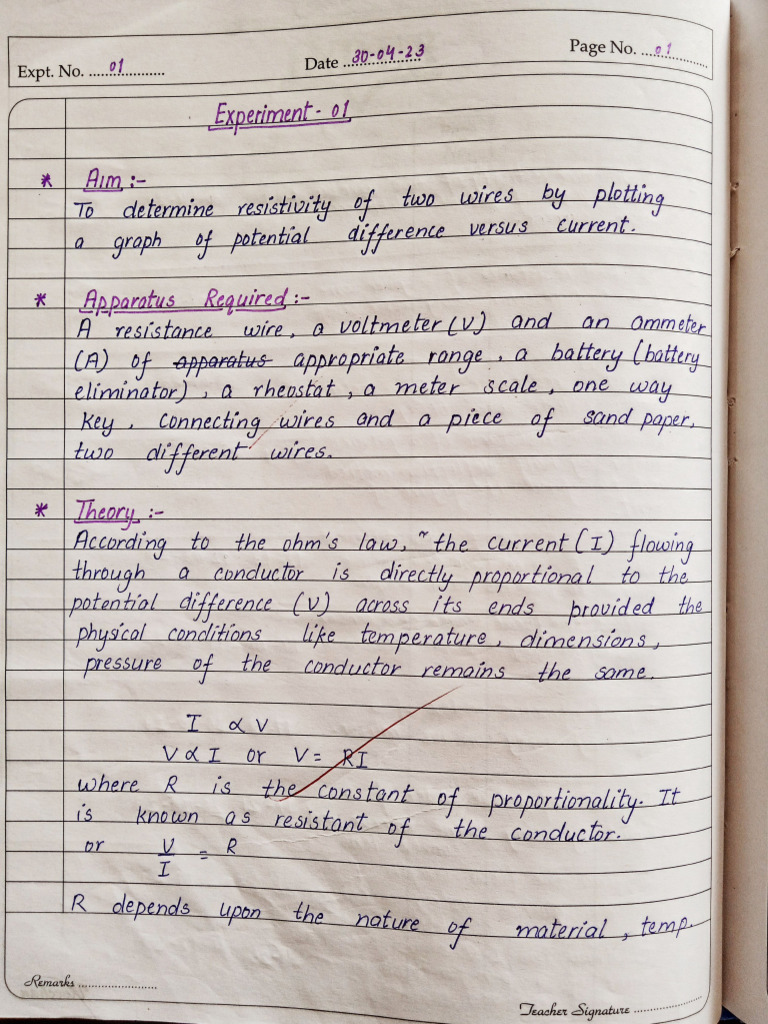 Expt. No. ....01............
Date ..30-04-23..
Page No. ....01............
Experiment - 01
* Aim :-
To determine resistivity of two wires by plotting
a graph of potential difference versus current.
* Apparatus Required :-
A resistance wire, a voltmeter (V) and an ammeter
(A) of apparatus appropriate range, a battery (battery
eliminator), a rheostat, a meter scale, one way
key, connecting wires and a piece of sand paper,
two different wires.
* Theory :-
According to the ohm's law, "the current (I) flowing
through a conductor is directly proportional to the
potential difference (V) across its ends provided the
physical conditions like temperature, dimensions,
pressure of the conductor remains the same.
I ∝ V
V ∝ I or V = RI
where R is the constant of proportionality. It
is known as resistant of the conductor.
or V/I = R
R depends upon the nature of material, temp.
Remarks ........................
Teacher Signature ....................